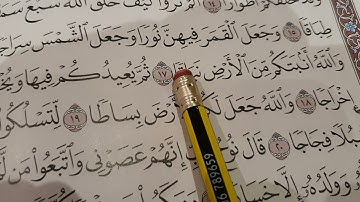 أَطْوَارًا ۝١٤ أَلَمْ تَرَوْا كَيْفَ خَلَقَ اللَّهُ سَبْعَ
طِبَاقًا ۝١٥ وَجَعَلَ الْقَمَرَ فِيهِنَّ نُورًا وَجَعَلَ الشَّمْسَ سِرَاجًا
وَاللَّهُ أَنۢبَتَكُم مِّنَ الْأَرْضِ ۝١٧ ثُمَّ يُعِيدُكُمْ فِيهَا
إِخْرَاجًا ۝١٨ وَاللَّهُ جَعَلَ الْأَرْضَ بِسَاطًا ۝١٩ لِّتَسْلُكُوا
سُبُلًا فِجَاجًا ۝٢٠ قَالَ نُوحٌ إِنَّهُمْ عَصَوْنِي وَاتَّبَعُوا مَن
وَوَلَدُهُ إِلَّا خَسَارًا
6789659